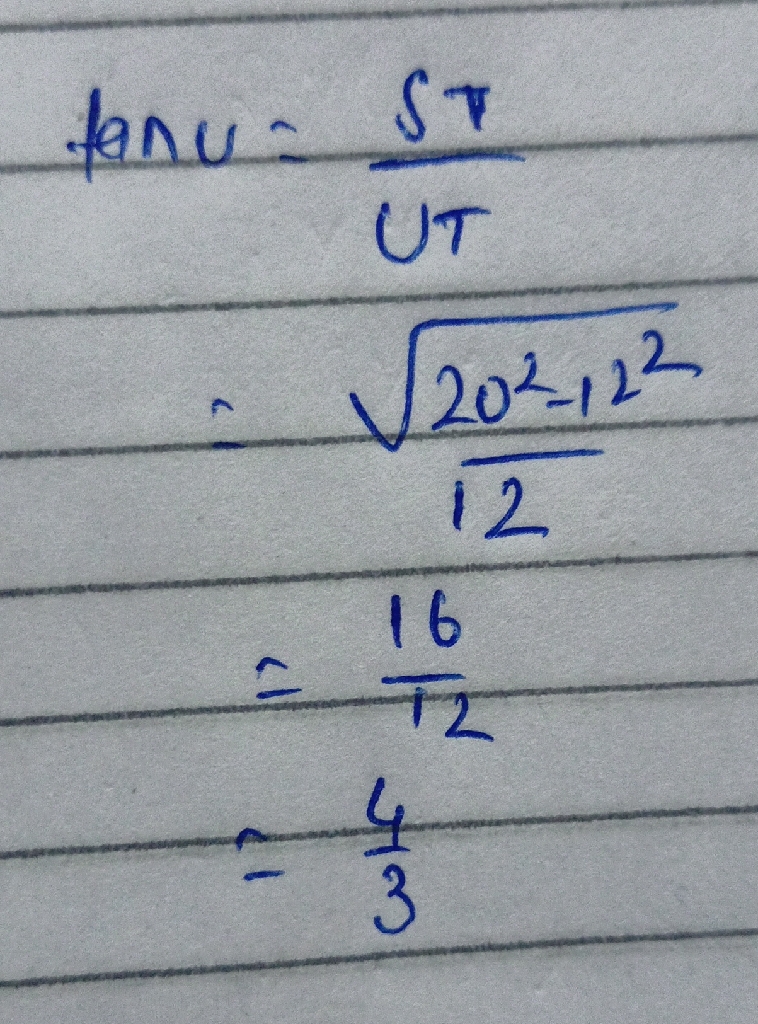 tan U = ST/UT
= √(20²-12²)/12
= 16/12
= 4/3